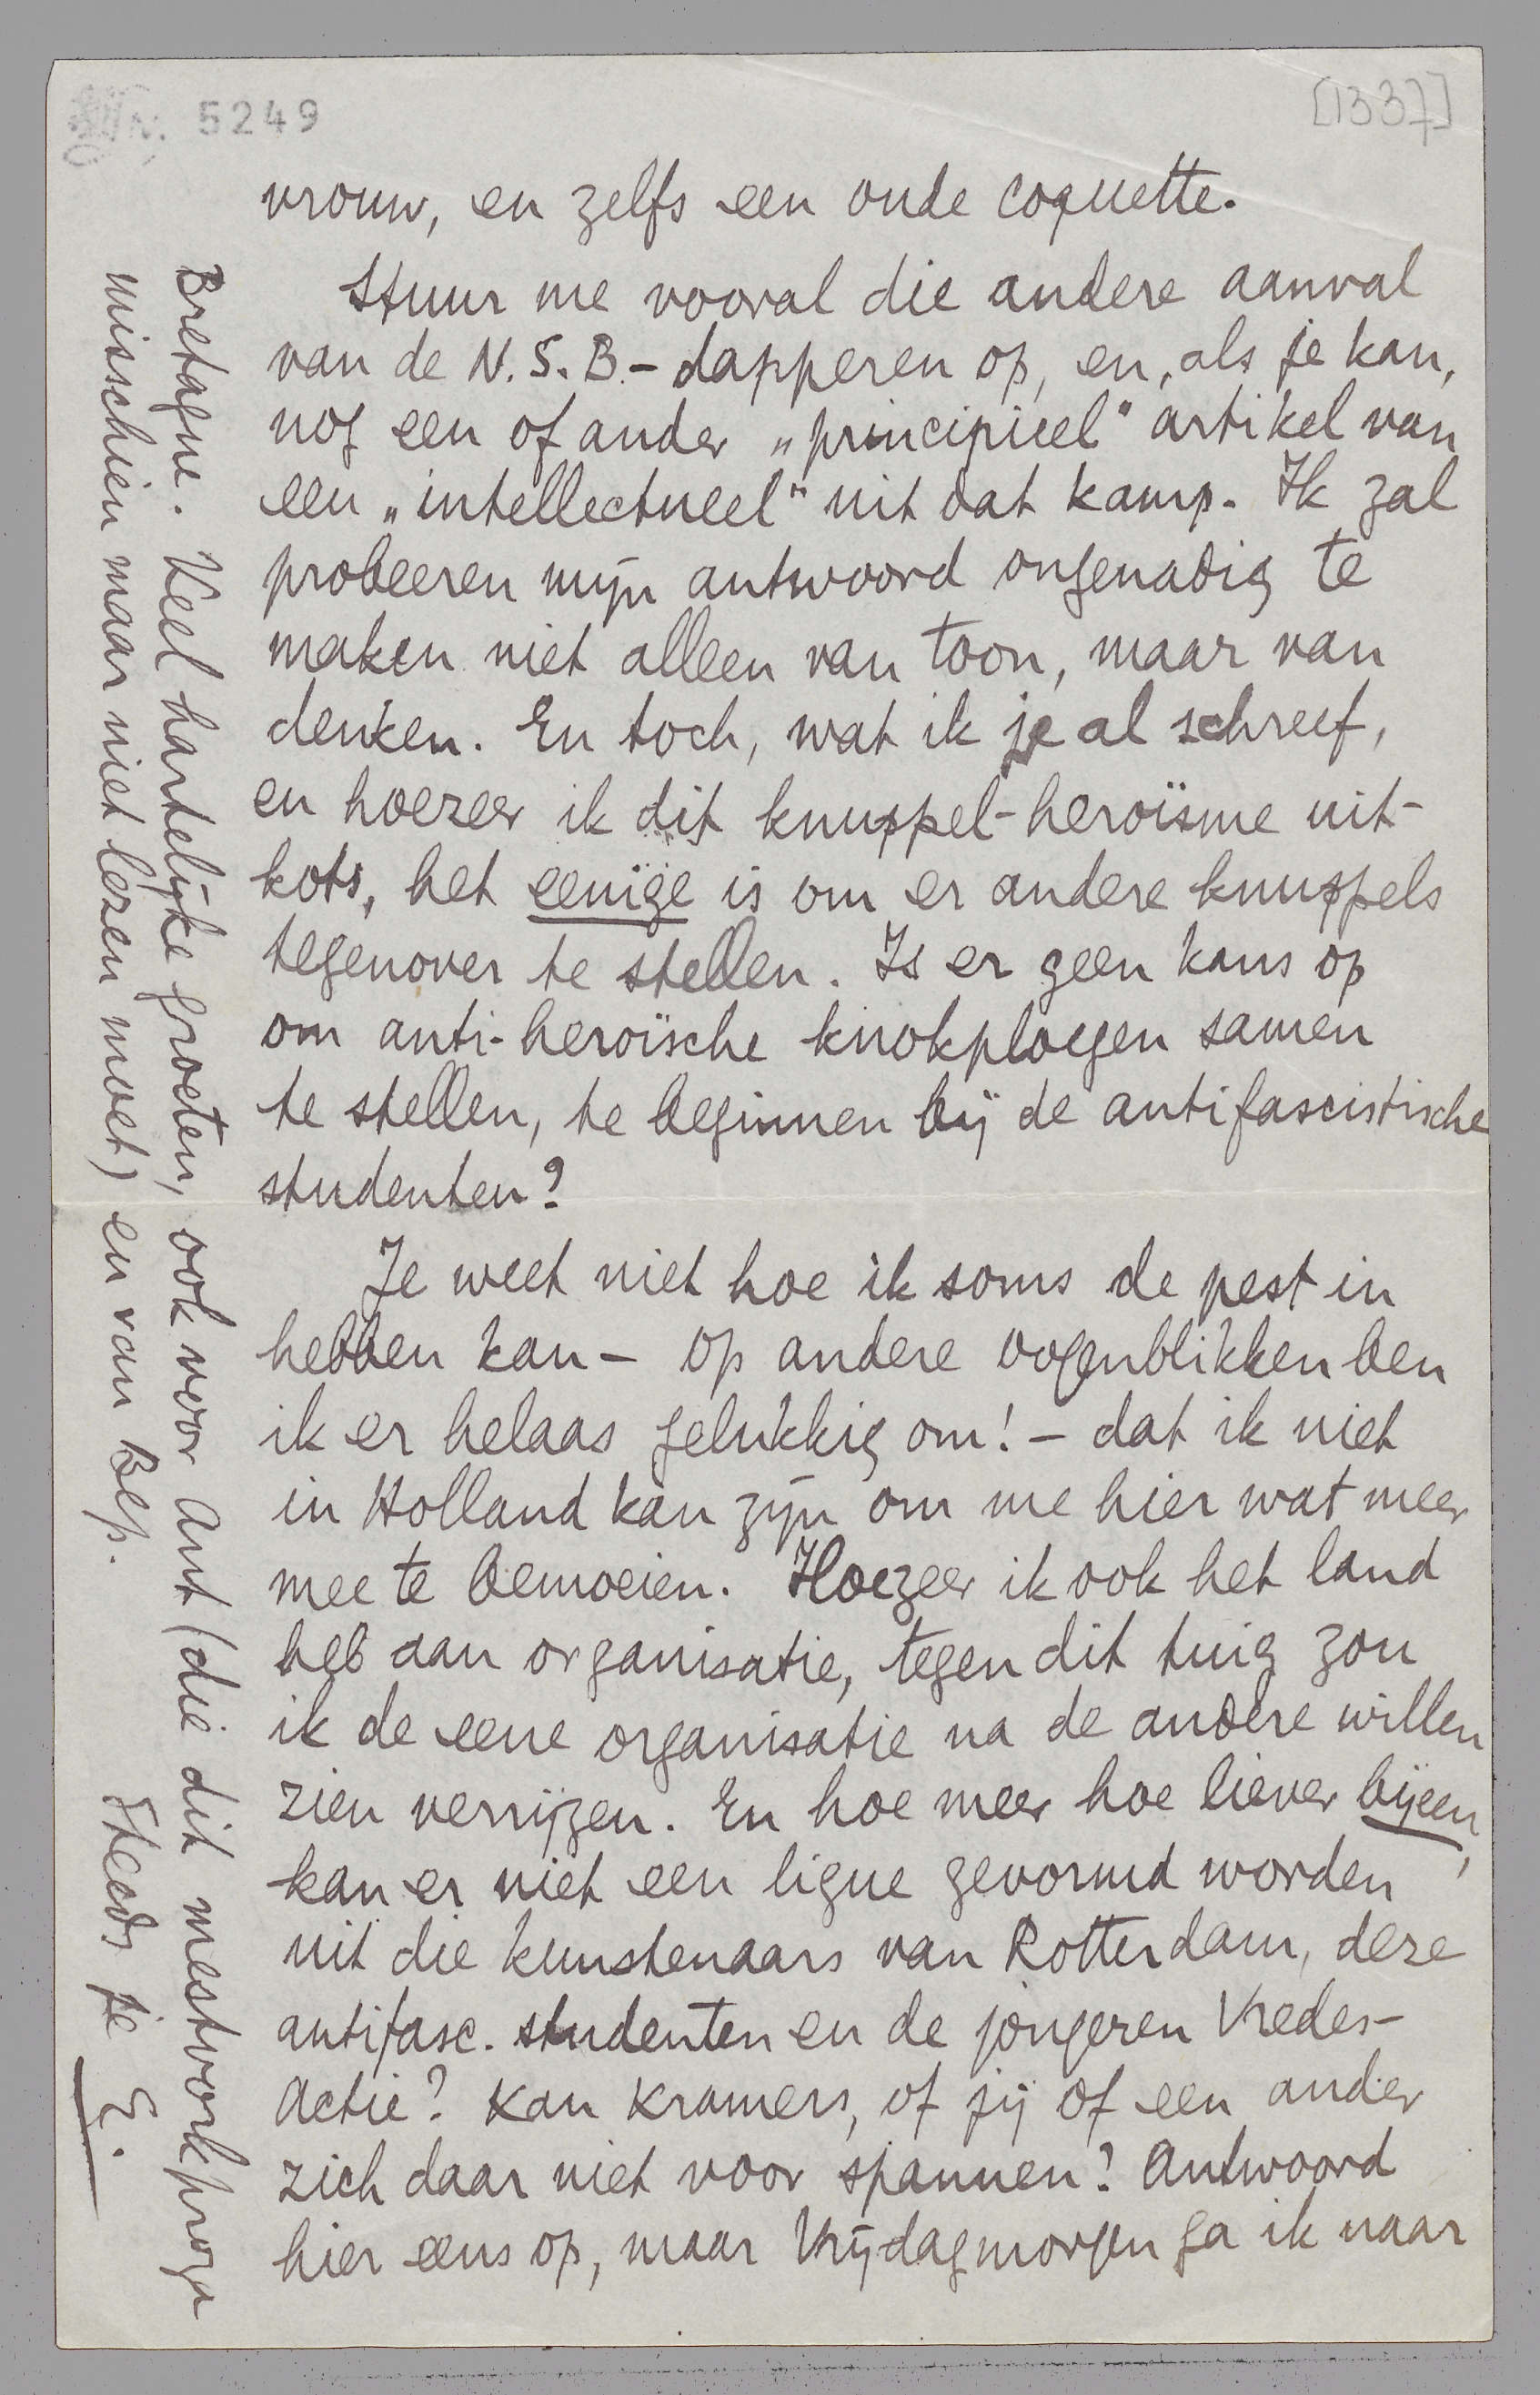 5249
[1337]
vrouw, en zelfs een oude coquette.
Stuur me vooral die andere aanval
van de N.S.B.-dapperen op, en, als je kan,
nog een of ander „principieel" artikel van
een „intellectueel" uit dat kamp. Ik zal
probeeren mijn antwoord ongenadig te
maken niet alleen van toon, maar van
denken. En toch, wat ik je al schreef,
en hoezeer ik dit knuppel-heroïsme uit-
kots, het eenige is om er andere knuppels
tegenover te stellen. Is er geen kans op
om anti-heroïsche knokploegen samen
te stellen, te beginnen bij de antifascistische
studenten?
Je weet niet hoe ik soms de pest in
hebben kan – op andere oogenblikken ben
ik er helaas gelukkig om! – dat ik niet
in Holland kan zijn om me hier wat meer
mee te bemoeien. Hoezeer ik ook het land
heb aan organisatie, tegen dit tuig zou
ik de eene organisatie na de andere willen
zien verrijzen. En hoe meer hoe liever bijeen,
kan er niet een ligue gevormd worden
uit die kunstenaars van Rotterdam, deze
antifasc. studenten en de jongeren Vredes-
Actie? Kan Kramers, of jij of een ander
zich daar niet voor spannen? Antwoord
hier eens op, maar Vrijdagmorgen ga ik naar
Bretagne. Veel hartelijke groeten, ook voor Ant (die dit mestvorkproza
misschien maar niet lezen moet) en van Bep.
Steeds je E.